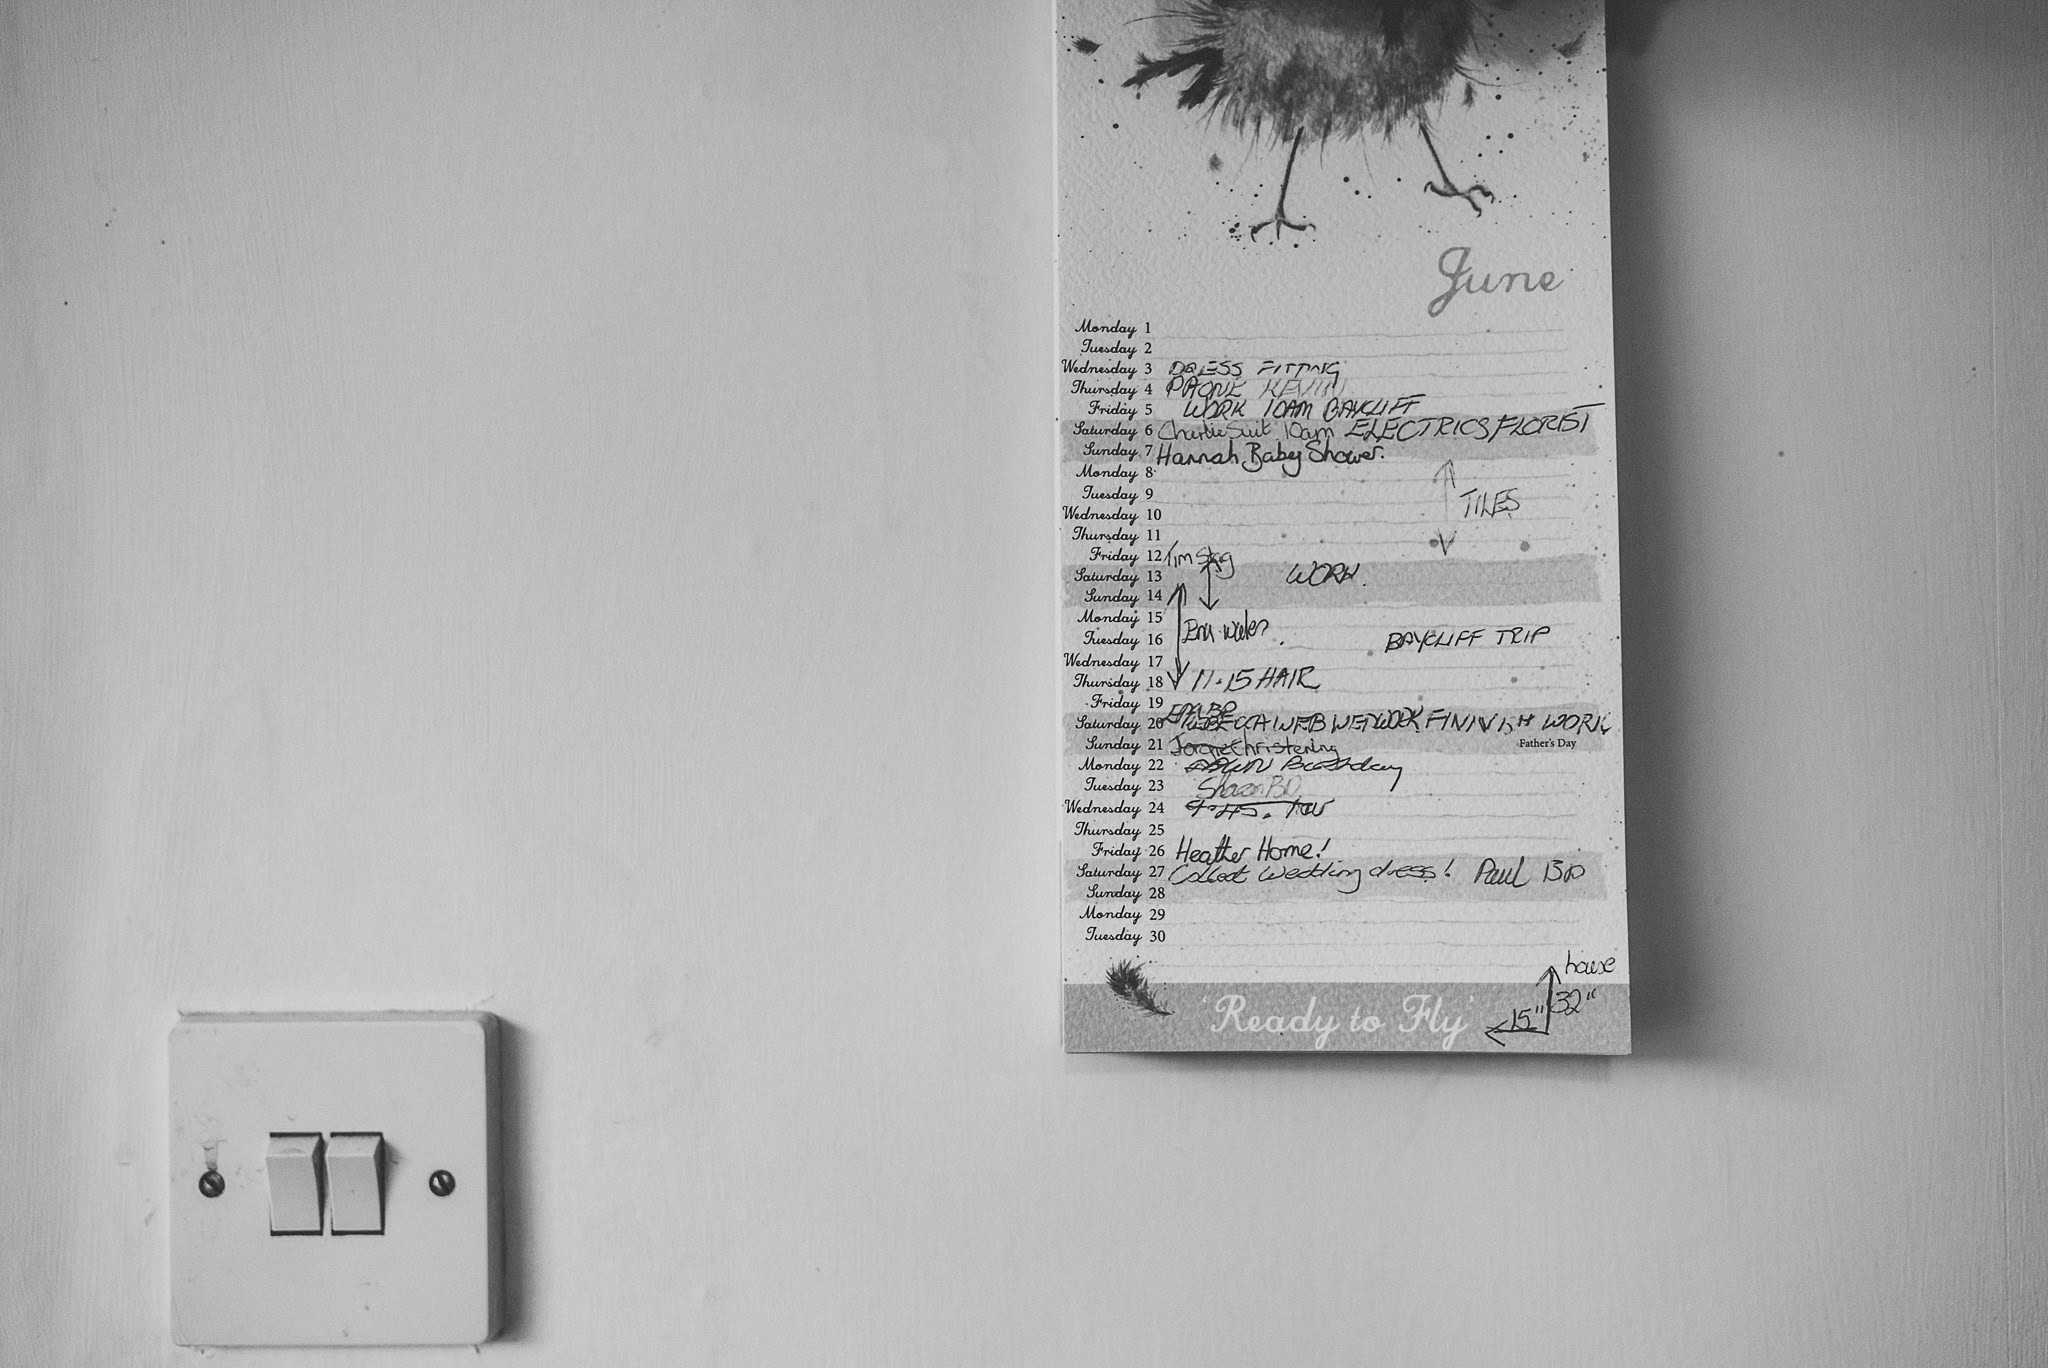 June
Monday 1
Tuesday 2
Wednesday 3 DRESS FITTING
Thursday 4 PHONE KEVIN
Friday 5 WORK 10AM BAYCLIFF
Saturday 6 Charlie Suit 10am ELECTRICS FLORIST
Sunday 7 Hannah Baby Shower.
Monday 8
Tuesday 9 TILES
Wednesday 10
Thursday 11
Friday 12 Tim Stag
Saturday 13 WORK.
Sunday 14
Monday 15
Tuesday 16 BAYCLIFF TRIP
Wednesday 17
Thursday 18 11.15 HAIR
Friday 19
Saturday 20 FINISH WORK
Sunday 21 Christening Father's Day
Monday 22 DAWN Birthday
Tuesday 23 Sharon BD
Wednesday 24 9.45.
Thursday 25
Friday 26 Heather Home!
Saturday 27 Collect Wedding dress! Paul BD
Sunday 28
Monday 29
Tuesday 30
house
32"
15"
'Ready to Fly'